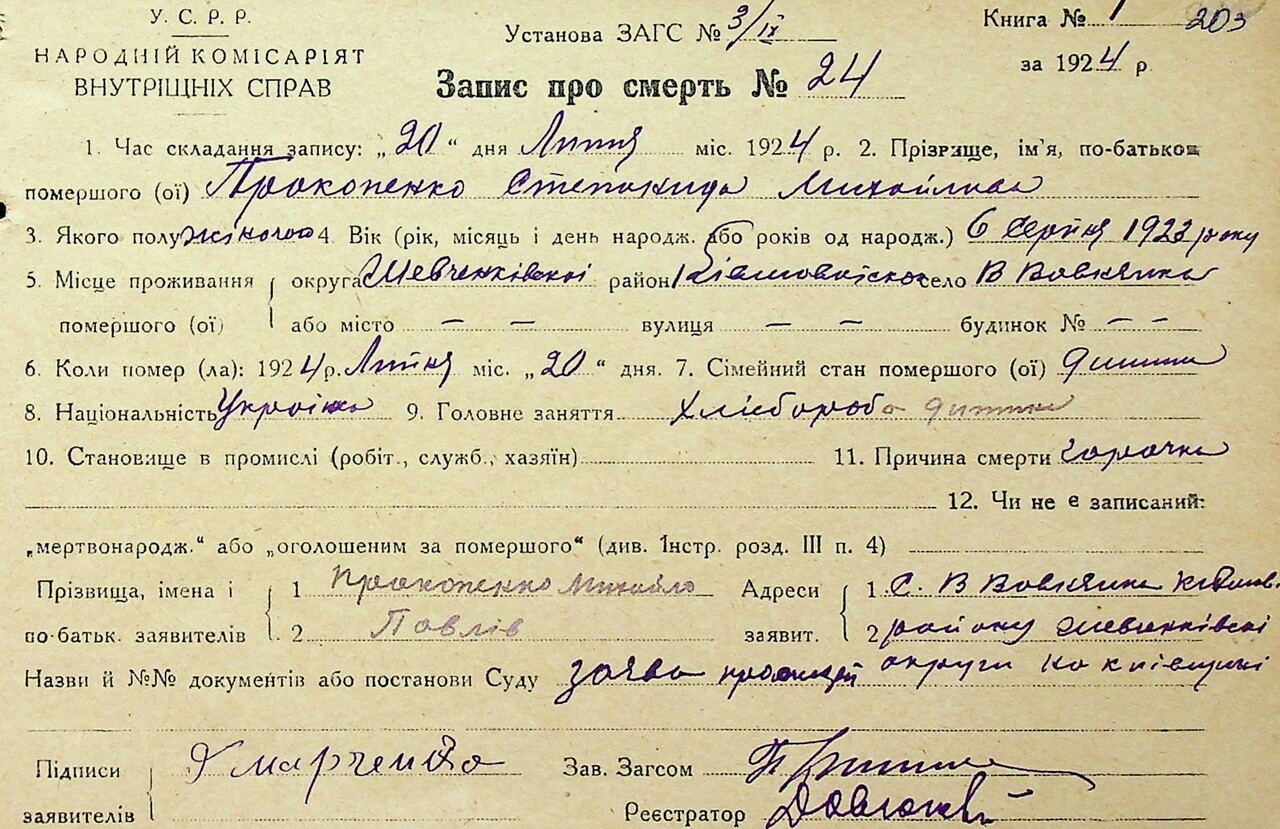 У. С. Р. Р.
НАРОДНІЙ КОМІСАРІЯТ
ВНУТРІЩНІХ СПРАВ
Установа ЗАГС № 3/ІХ
Запис про смерть № 24
Книга № 1 203
за 1924 р.
1. Час складання запису: „20“ дня Липня міс. 1924 р. 2. Прізвище, ім'я, по-батькові
помершого (ої) Прокопенко Степанида Михайлова
3. Якого полу жіночого 4. Вік (рік, місяць і день народж. або років од народж.) 6 Серпня 1923 року
5. Місце проживання округа Шевченківскої район село В Вовнянка
помершого (ої) або місто — — вулиця — — будинок № — —
6. Коли помер (ла): 1924 р. Липня міс. „20“ дня. 7. Сімейний стан помершого (ої) дитина
8. Національність Українка 9. Головне заняття Хлібороба дитина
10. Становище в промислі (робіт., служб., хазяїн) 11. Причина смерти горячка
12. Чи не є записаний:
„мертвонародж.“ або „оголошеним за помершого“ (див. Інстр. розд. III п. 4)
Прізвища, імена і 1 Прокопенко Михайло Адреси 1 С. В Вовнянка
по-батьк. заявителів 2 Павлів заявит. 2 району Шевченківскі
Назви й №№ документів або постанови Суду заява округи на Київщині
Підписи Марченко Зав. Загсом
заявителів Реєстратор